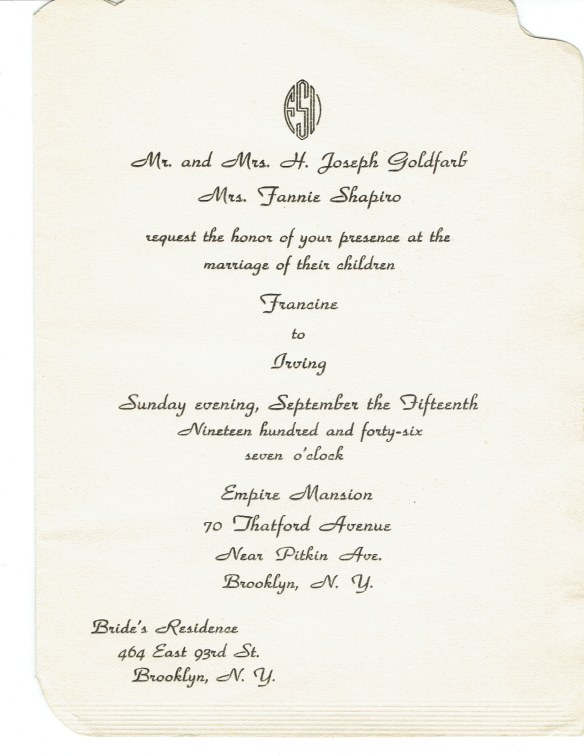 FSI
Mr. and Mrs. H. Joseph Goldfarb
Mrs. Fannie Shapiro
request the honor of your presence at the
marriage of their children
Francine
to
Irving
Sunday evening, September the Fifteenth
Nineteen hundred and forty-six
seven o'clock
Empire Mansion
70 Thatford Avenue
Near Pitkin Ave.
Brooklyn, N. Y.
Bride's Residence
464 East 93rd St.
Brooklyn, N. Y.